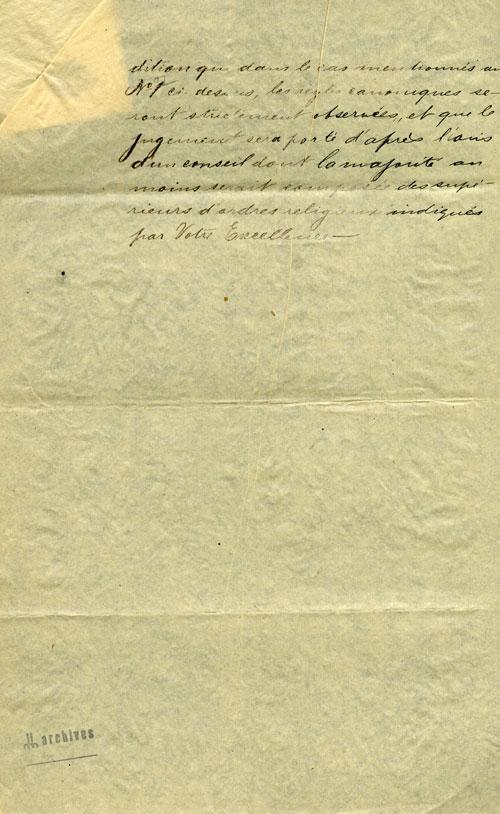 dition que dans le cas mentionnés au
No 7 ci dessus, les règles canoniques se-
ront strictement observées, et que le
jugement sera porté d'après l'avis
d'un conseil dont la majorité au
moins serait composée des supé-
rieurs d'ordres religieux indiqués
par Votre Excellence—
archives